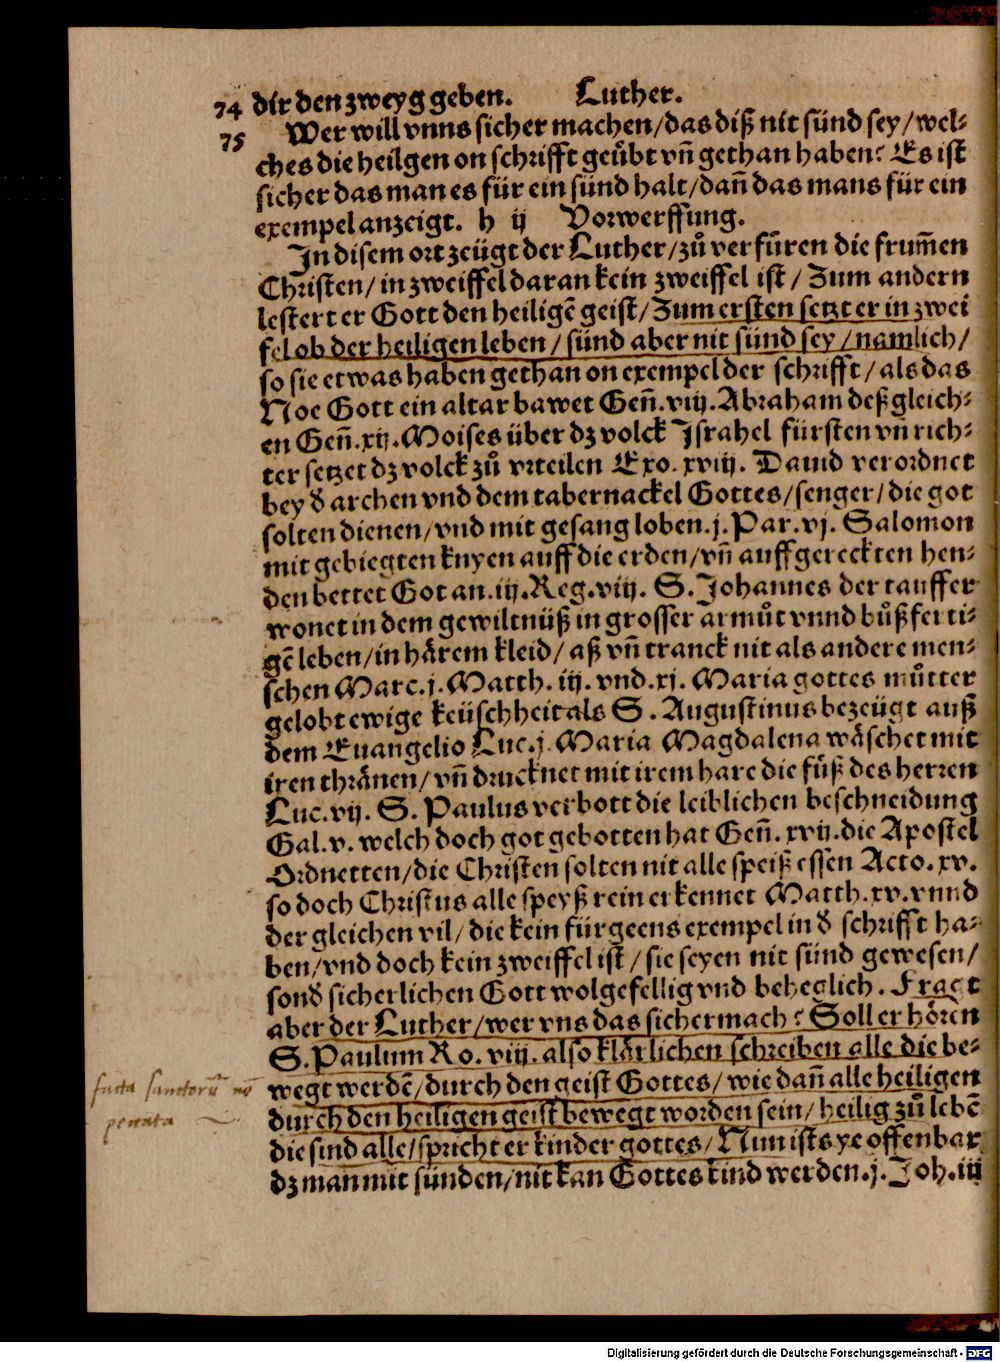 74 dir den zweyg geben. Luther.
75 Wer will vnns sicher machen/das diß nit sünd sey/wel⸗
ches die heilgen on schrifft geuͤbt vñ gethan haben? Es ist
sicher das man es für ein sünd halt/dañ das mans für ein
exempel anzeigt. h ij Vorwerffung.
In disem ort zeügt der Luther/zuͦ verfuͤren die frum̃en
Christen/in zweiffel daran kein zweiffel ist/ Zum andern
lestert er Gott den heiligẽ geist/Zum ersten setzt er in zwei
fel ob der heiligen leben/ sünd aber nit sünd sey/namlich/
so sie etwas haben gethan on exempel der schrifft/als das
Noe Gott ein altar bawet Geñ.viij.Abraham deßgleich⸗
en Geñ.xij.Moises über dz volck Israhel fürsten vñ rich⸗
ter setzet dz volck zuͦ vrteilen Exo.xviij. Dauid verordnet
bey d̕ archen vnd dem tabernackel Gottes/senger/die got
solten dienen/vnd mit gesang loben.j.Par.vj. Salomon
mit gebiegten knyen auff die erden/vñ auffgereckten hen⸗
den bettet Got an.iij.Reg.viij. S.Johannes der tauffer
wonet in dem gewiltnüß in grosser armuͦt vnnd buͦßferti⸗
gẽ leben/in haͤrem kleid/aß vñ tranck nit als andere men⸗
schen Marc.j.Matth.iij.vnd.xj. Maria gottes muͦtter
gelobt ewige keüschheit als S. Augustinus bezeügt auß
dem Euangelio Luc.j. Maria Magdalena waͤschet mit
iren thraͤnen/vñ drucknet mit irem hare die fuͤß des herren
Luc.vij. S. Paulus verbott die leiblichen beschneidung
Gal.v. welch doch got gebotten hat Geñ.xvij.die Apostel
Ordnetten/die Christen solten nit alle speiß essen Acto.xv.
so doch Christus alle speyß rein erkennet Matth.xv.vnnd
der gleichen vil/die kein fürgeens exempel in d̕ schrifft ha⸗
ben/vnd doch kein zweiffel ist/sie seyen nit sünd gewesen/
sond̕ sicherlichen Gott wolgefellig vnd beheglich. Fragt
aber der Luther/wer vns das sicher mach? Soll er hoͤren
S.Paulum Ro.viij.also klaͤrlichen schreiben alle die be⸗
wegt werdẽ/durch den geist Gottes/wie dañ alle heiligen
durch den heiligen geist bewegt worden sein/heilig zuͦ lebẽ
die sind alle/spricht er kinder gottes/Nun ists ye offenbar
dz man mit sünden/nit kan Gottes kind werden.j.Joh.iij
facta sanctorũ nõ
peccata
Digitalisierung gefördert durch die Deutsche Forschungsgemeinschaft - DFG